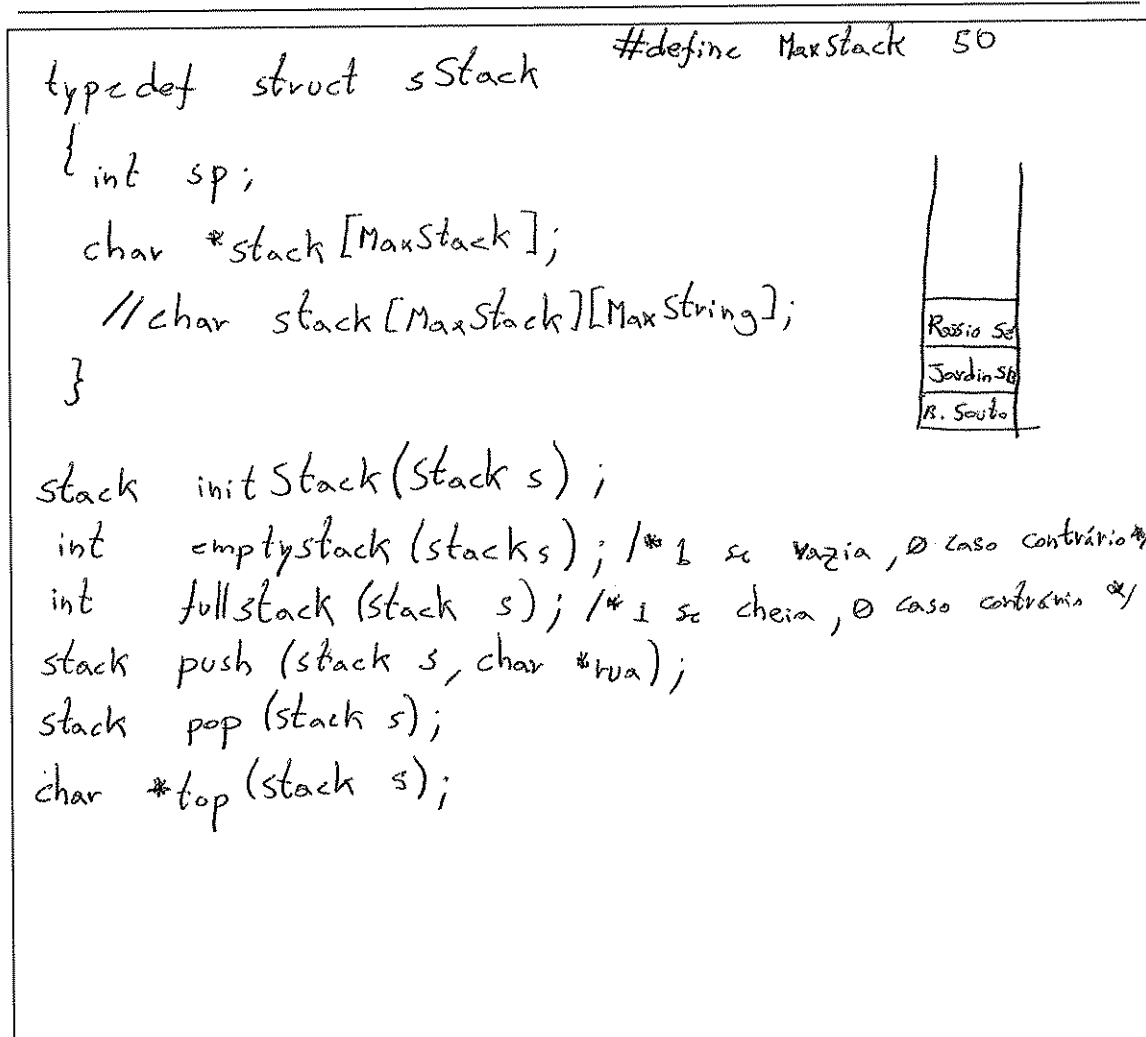 #define MaxStack 50
typedef struct sStack
{ int sp;
char *stack [MaxStack];
//char stack[MaxStack][MaxString];
}
Rossio Sé
Jardim Sé
B. Souto
stack initStack(Stack s);
int emptystack (stack s); /* 1 se vazia, 0 caso contrário */
int fullstack (stack s); /* 1 se cheia, 0 caso contrário */
stack push (stack s, char *rua);
stack pop (stack s);
char *top (stack s);